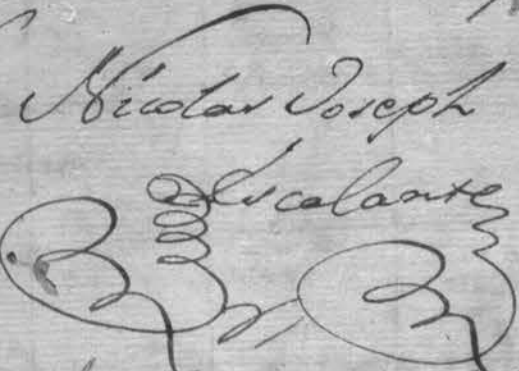 Nicolas Joseph
Escalante